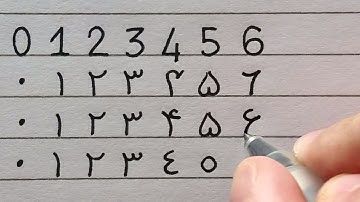 0 1 2 3 4 5 6
۰ ۱ ۲ ۳ ۴ ۵ ۶
۰ ۱ ۲ ۳ ۴ ۵ ۶
٠ ١ ٢ ٣ ٤ ٥